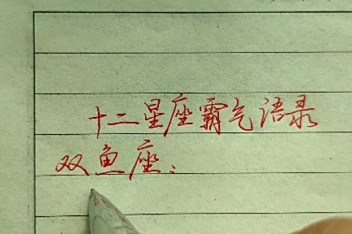 十二星座霸气语录
双鱼座：